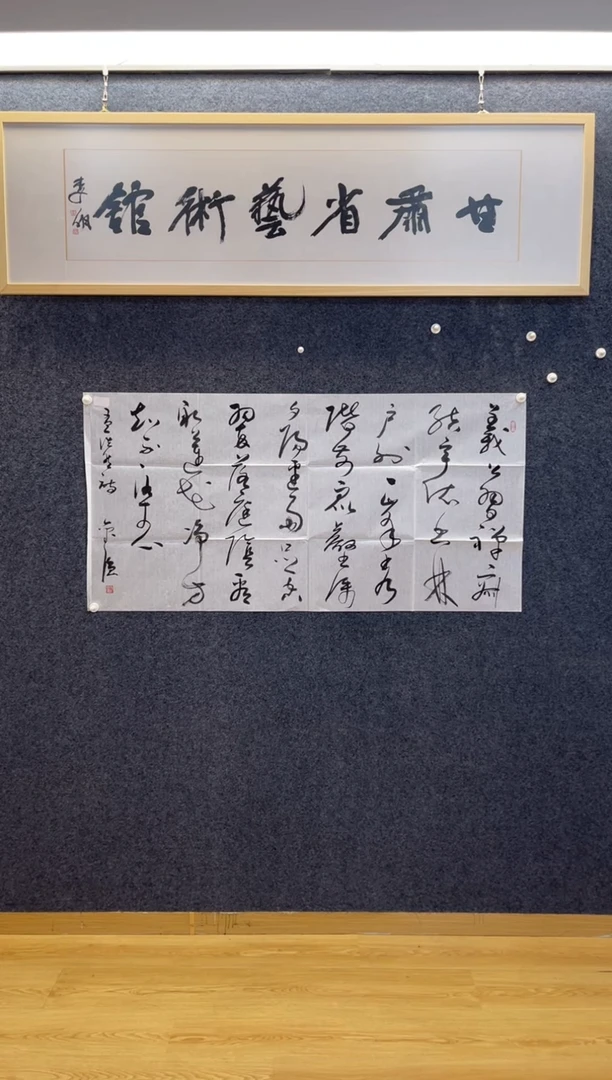 甘肅省藝術館
義公習禪寂
結宇依空林
户外一峯秀
階前衆壑深
夕陽連雨足空
翠落庭陰看
取蓮花淨方
知不染心
孟浩然詩